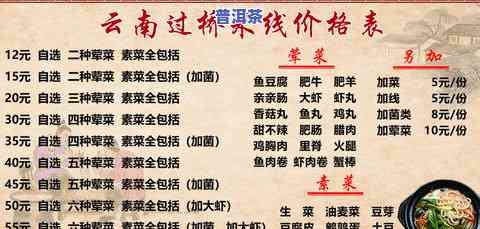 云南过桥米线价格表
普洱茶
12元 自选 二种荤菜 素菜全包括
15元 自选 二种荤菜 素菜全包括(加菌)
20元 自选 三种荤菜 素菜全包括
30元 自选 四种荤菜 素菜全包括
35元 自选 四种荤菜 素菜全包括(加菌)
40元 自选 五种荤菜 素菜全包括
45元 自选 五种荤菜 素菜全包括(加菌)
50元 自选 六种荤菜 素菜全包括(加大虾)
55元 自选 六种荤菜 素菜全包括(加菌 加大虾)
荤菜
鱼豆腐 肥牛 肥羊
亲亲肠 大虾 虾丸
香菇丸 鱼丸 鸡丸
甜不辣 肥肠 腊肉
鸡胸肉 里脊 火腿
鱼肉卷 虾肉卷 蟹棒
素菜
生菜 油麦菜 豆芽
豆腐皮 鹌鹑蛋 土豆
另加
加菜 5元/份
加线 5元/份
加菌类 8元/份
加荤菜 10元/份